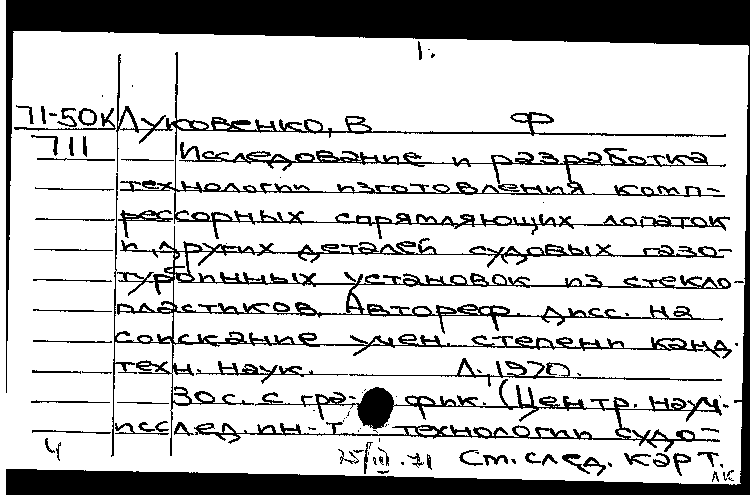 1.
71-50К Луковенко, В Ф
711 Исследование и разработка
технологии изготовления комп-
рессорных спрямляющих лопаток
и других деталей судовых газо-
турбинных установок из стекло-
пластиков. Автореф. дисс. на
соискание учен. степени канд.
техн. наук. Л., 1970.
30с. с гра- фик. (Центр. науч.-
исслед. ин-т технологии судо-
4 25/III.71 См. след. карт.
ЛК